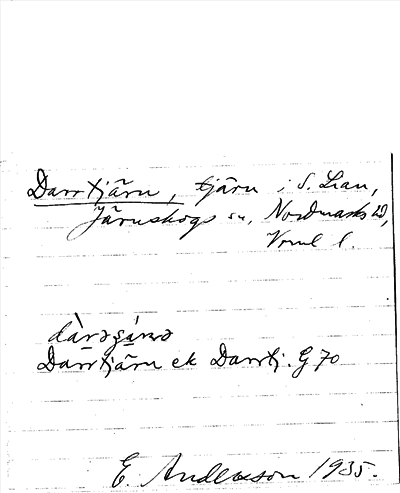 Darrtjärn, tjärn i S. Lian,
Järnskogs sn, Nordmarks hd,
Vrml l.
dàrəʂánə
Darrtjärn ek Darrtj. G 70
E. Andersson 1935.